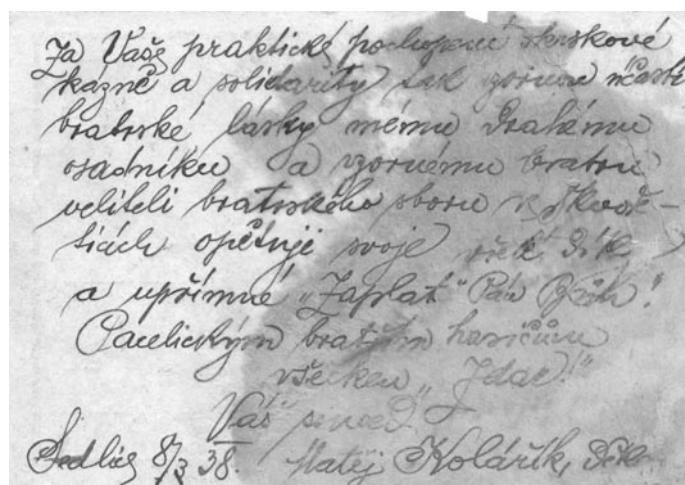 Za Vaše praktické pochopení
kázně a solidarity tak vzornou účastí
bratrské lásky mému drahému
osadníku a vzornému bratru
veliteli bratrského sboru v Škvoře-
ticích opětuji svoje dík
a upřímné „Zaplať Pán Bůh!
Pacelickým bratřím hasičům
všecken „Zdar!"
Váš
Sedlice 8/3 38. Matěj Kolářík, děk.